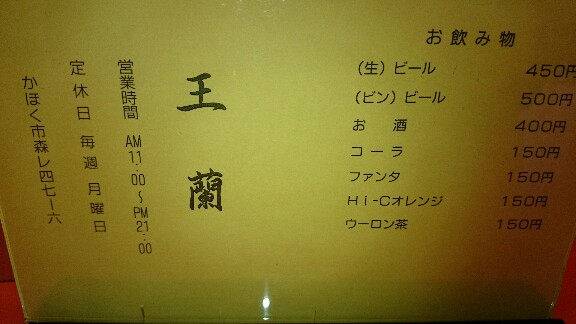 お飲み物
(生)ビール 450円
(ビン)ビール 500円
お酒 400円
コーラ 150円
ファンタ 150円
Hi-Cオレンジ 150円
ウーロン茶 150円
王蘭
営業時間 AM11:00〜PM21:00
定休日 毎週月曜日
かほく市森レ四七ー六